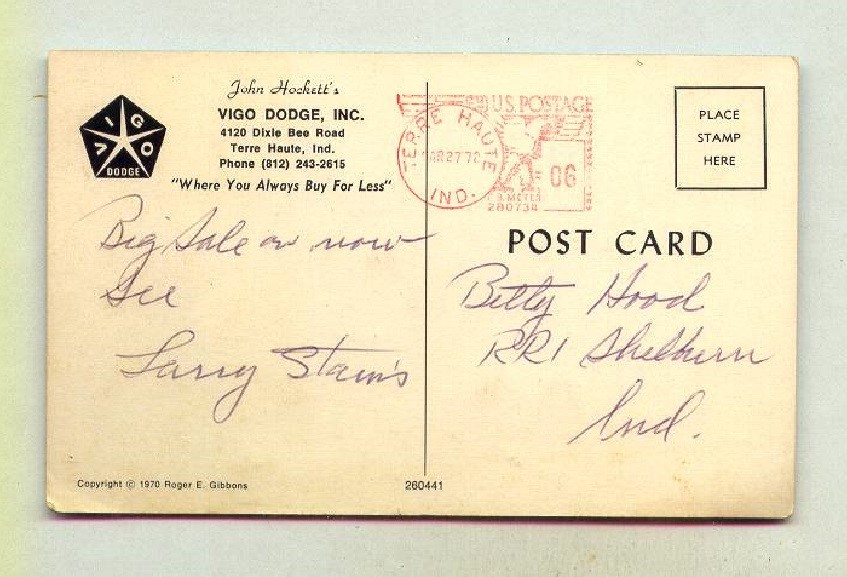 John Hockett's
VIGO DODGE, INC.
4120 Dixie Bee Road
Terre Haute, Ind.
Phone (812) 243-2615
"Where You Always Buy For Less"
VIGO
DODGE
Big Sale on now
See
Larry Stam's
Copyright © 1970 Roger E. Gibbons
260441
TERRE HAUTE
27 72
IND.
U.S. POSTAGE
06
METER
280734
PLACE
STAMP
HERE
POST CARD
Betty Hood
RR1 Shelburn
Ind.